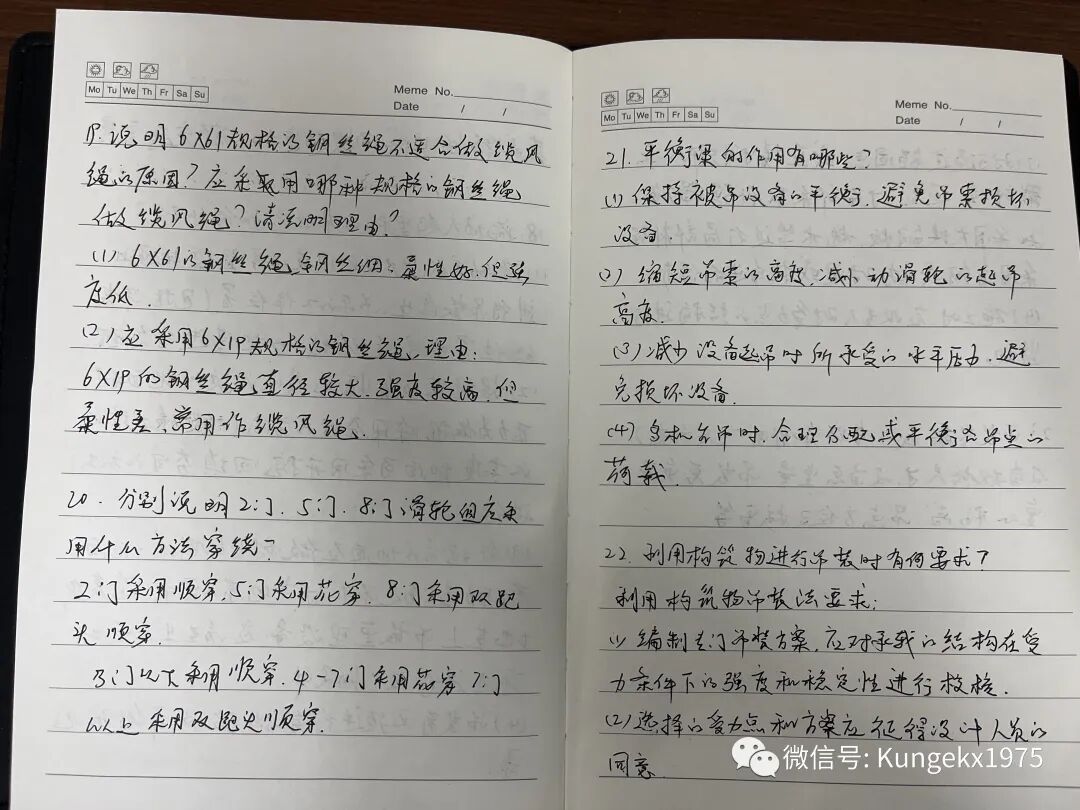 Mo Tu We Th Fr Sa Su
Meme No.
Date / /
19.说明6X61规格的钢丝绳不适合做缆风
绳的原因?应采取用哪种规格的钢丝绳
做缆风绳?请说明理由?
(1) 6X61的钢丝绳,钢丝细、柔性好,但强
度低.
(2) 应采用6X19规格的钢丝绳,理由:
6X19的钢丝绳,直径较大、强度较高,但
柔性差、常用作缆风绳.
20.分别说明2门、5门、8门滑轮组应采
用什么方法穿绕?
2门采用顺穿,5门采用花穿,8门采用双跑
头顺穿.
3门以下采用顺穿,4-7门采用花穿7门
以上采用双跑头顺穿.
Mo Tu We Th Fr Sa Su
Meme No.
Date / /
21.平衡梁的作用有哪些?
(1)保持被吊设备的平衡,避免吊索损坏
设备.
(2)缩短吊索的高度,减小动滑轮的起吊
高度.
(3)减少设备起吊时所承受的水平压力,避
免损坏设备.
(4)多机台吊时,合理分配或平衡各吊点的
荷载.
22.利用构筑物进行吊装时有何要求?
利用构筑物吊装法要求:
(1)编制专门吊装方案,应对承载的结构在受
力条件下的强度和稳定性进行校核.
(2)选择的受力点和方案应征得设计人员的
同意.
微信号: Kungekx1975